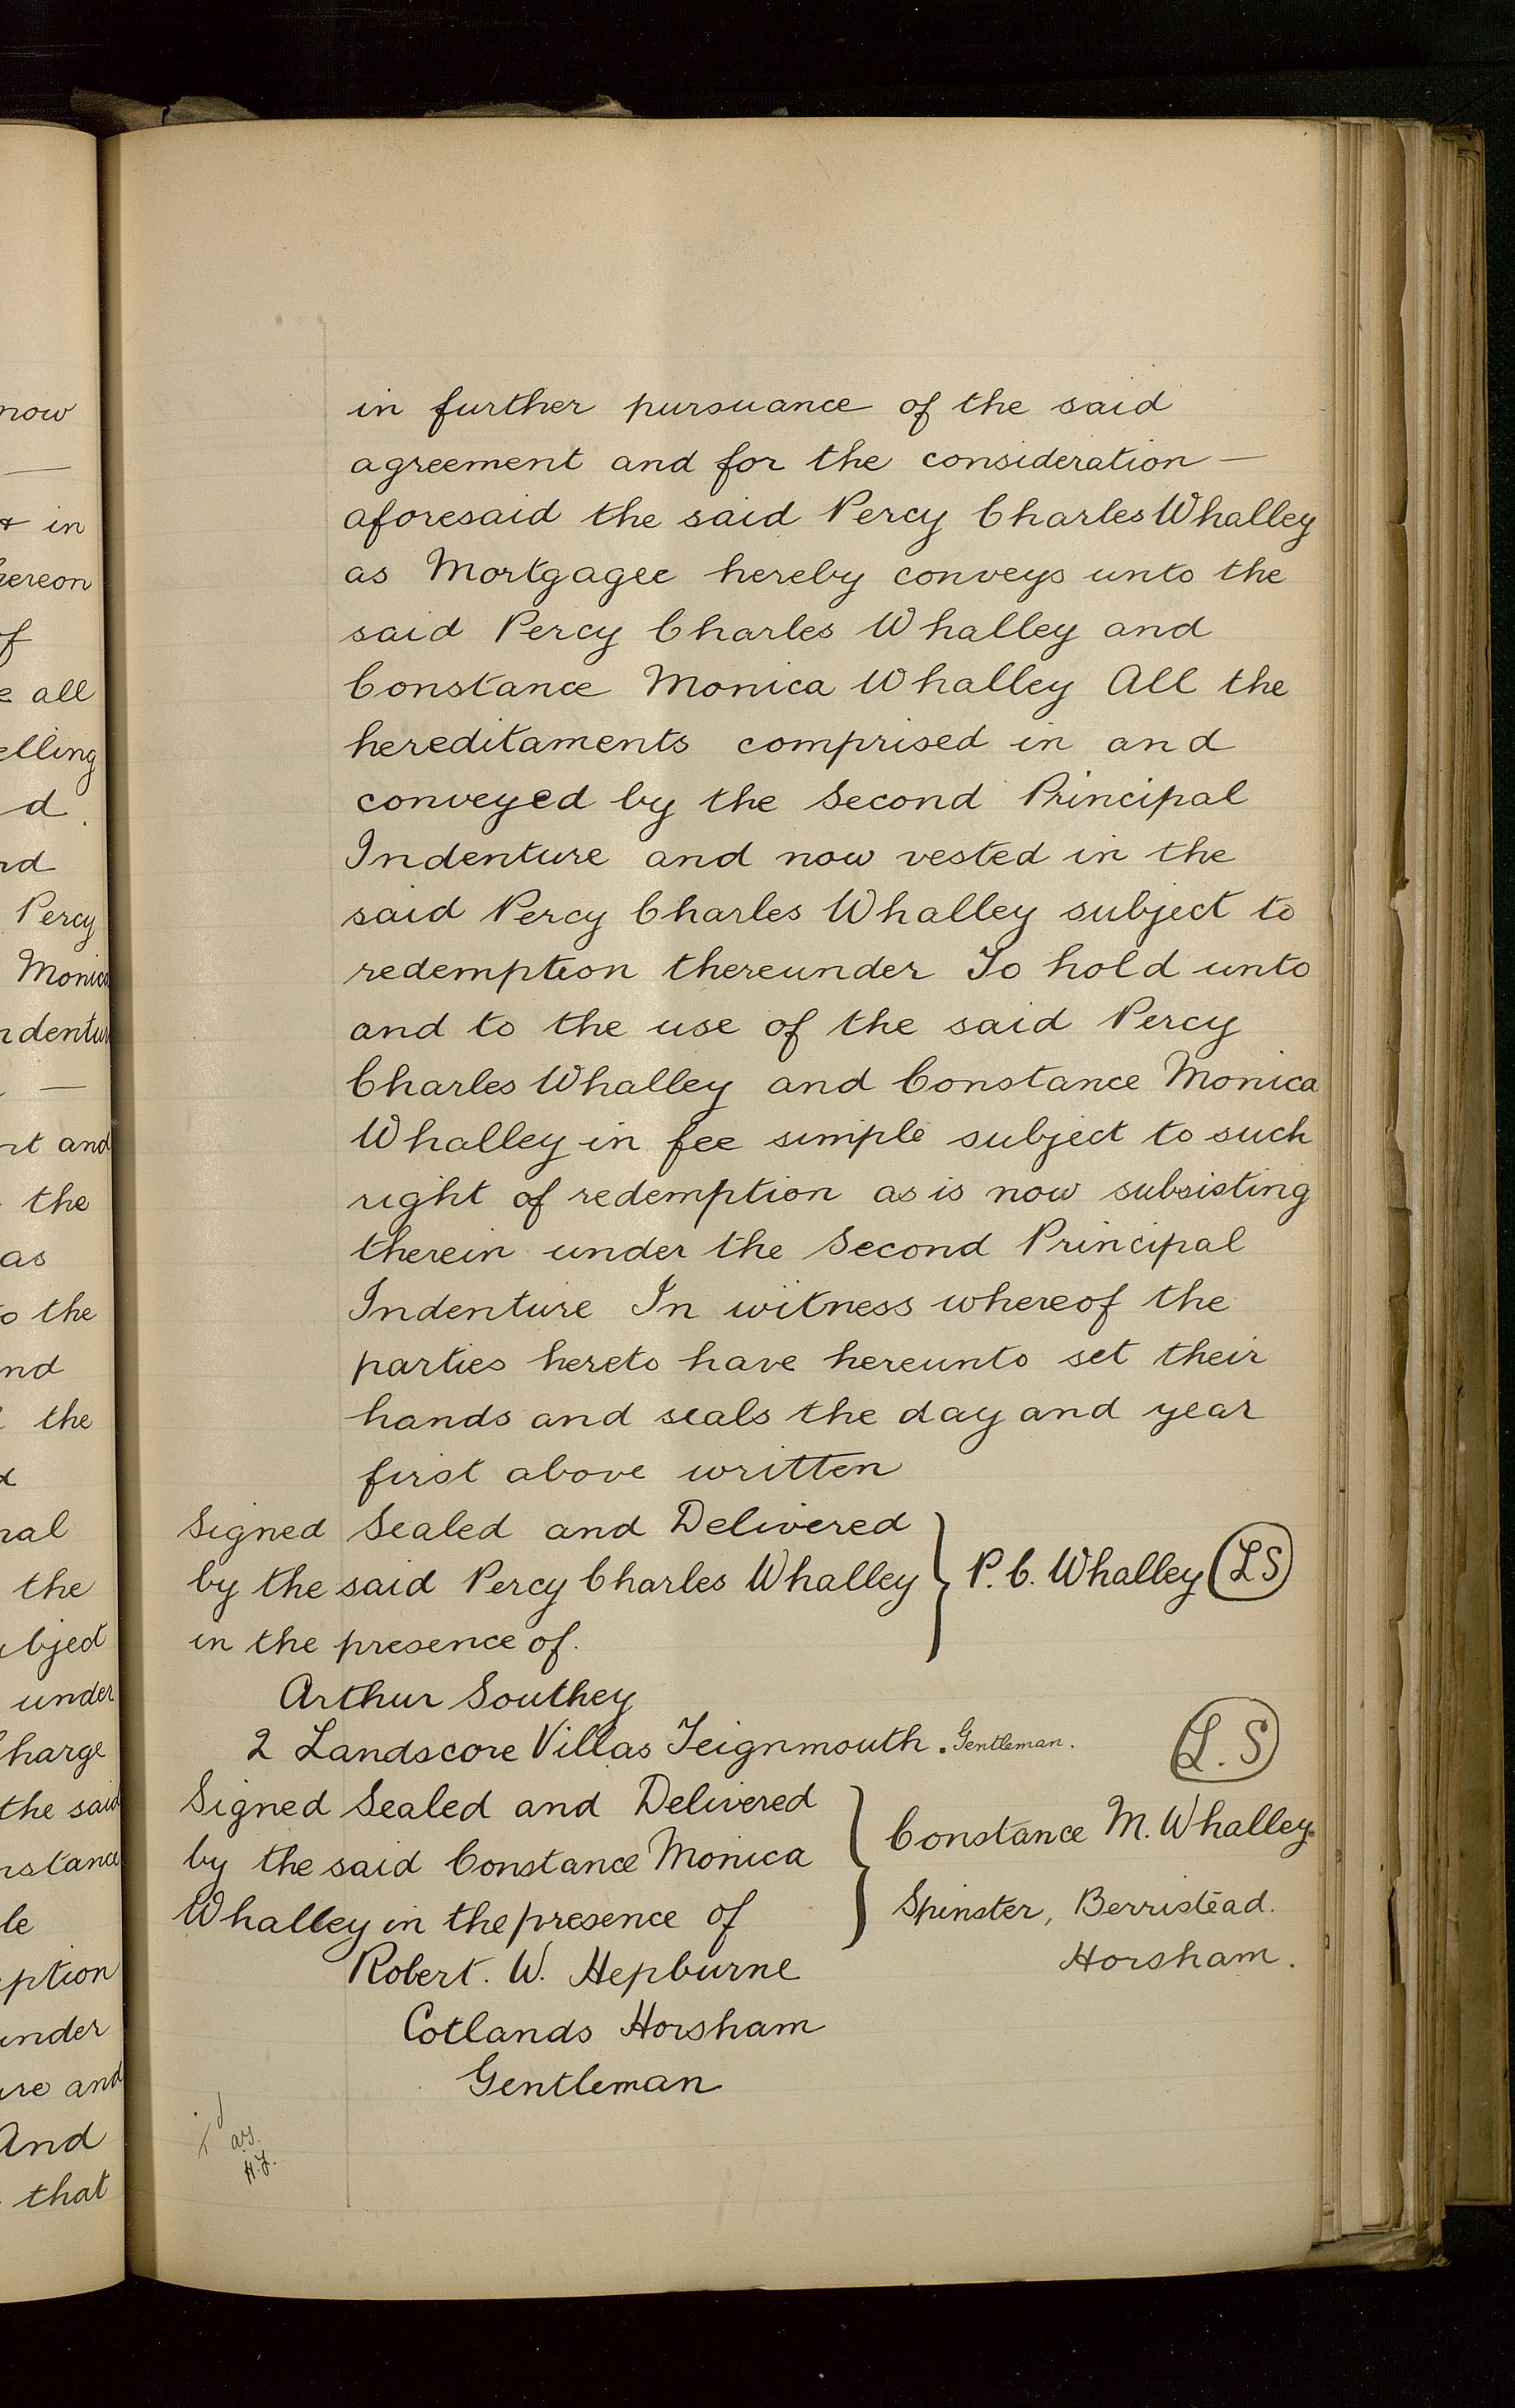 now
& in
hereon
of
all
elling
d.
Percy
Monica
ndentur
and
the
as
to the
nd
the
nal
the
ubject
under
harge
the said
nstance
le
ption
under
ure and
And
that
in further pursuance of the said
agreement and for the consideration —
aforesaid the said Percy Charles Whalley
as Mortgagee hereby conveys unto the
said Percy Charles Whalley and
Constance Monica Whalley All the
hereditaments comprised in and
conveyed by the Second Principal
Indenture and now vested in the
said Percy Charles Whalley subject to
redemption thereunder To hold unto
and to the use of the said Percy
Charles Whalley and Constance Monica
Whalley in fee simple subject to such
right of redemption as is now subsisting
therein under the Second Principal
Indenture In witness whereof the
parties hereto have hereunto set their
hands and seals the day and year
first above written
Signed Sealed and Delivered
by the said Percy Charles Whalley P. C. Whalley LS
in the presence of.
Arthur Southey
2 Landscore Villas Teignmouth. Gentleman.
L.S
Signed Sealed and Delivered
by the said Constance Monica Constance M. Whalley
Whalley in the presence of Spinster, Berristead.
Robert. W. Hepburne Horsham.
Cotlands Horsham
Gentleman